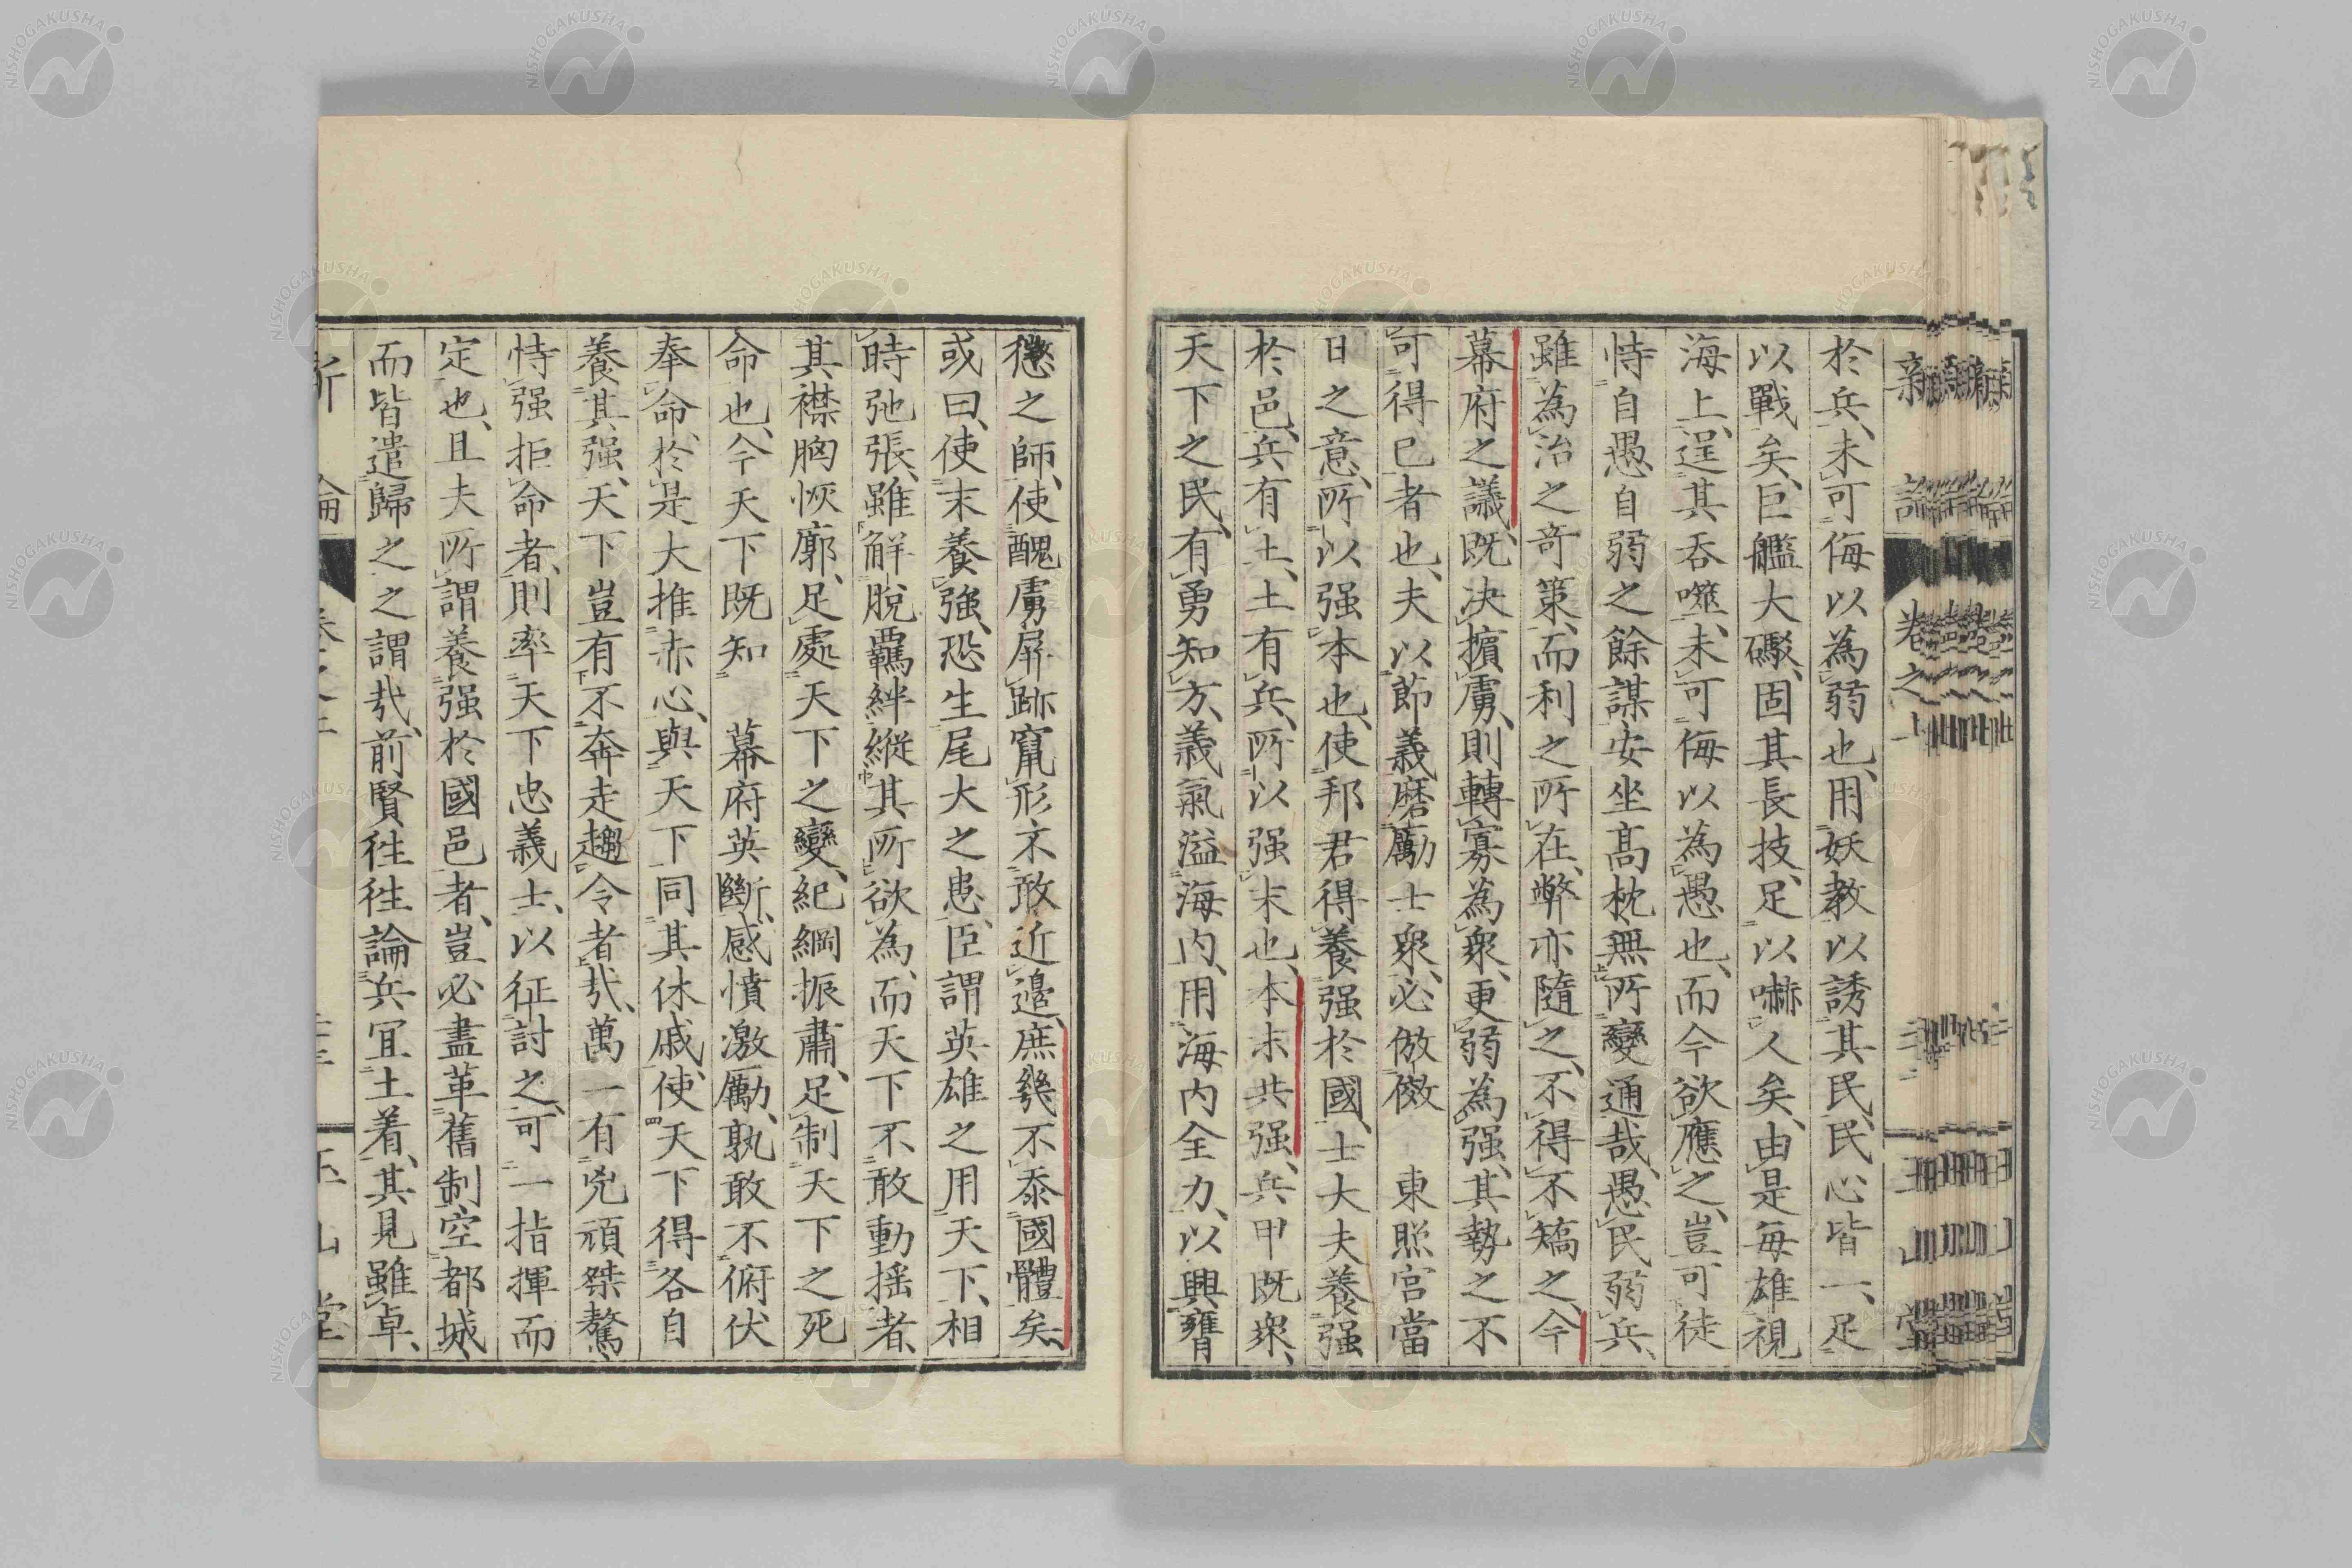 於兵、未可侮以為弱也、用妖教以誘其民、民心皆一、足
以戰矣、巨艦大礮、固其長技、足以嚇人矣、由是每雄視
海上、逞其吞噬、未可侮以為愚也、而今欲應之、豈可徒
恃自愚自弱之餘謀安坐高枕無所變通哉、愚民弱兵、
雖為治之奇策、而利之所在、弊亦隨之、不得不矯之、今
幕府之議、既決擯虜、則轉寡為衆、更弱為强、其勢之不
可得已者也、夫以節義磨勵士衆、必倣傚 東照宮當
日之意、所以强本也、使邦君得養强於國、士大夫養强
於邑、兵有土、土有兵、所以强末也、本末共强、兵甲既衆、
天下之民、有勇知方、義氣溢海內、用海內全力、以興膺
懲之師、使醜虜屏跡竄形不敢近邊、庶幾不忝國體矣、
或曰、使末養強、恐生尾大之患、臣謂英雄之用天下、相
時弛張、雖解脫羈絆縱其所欲為、而天下不敢動搖者、
其襟胸恢廓、足處天下之變、紀綱振肅、足制天下之死
命也、今天下既知 幕府英斷、感憤激勵、孰敢不俯伏
奉命、於是大推赤心、與天下同其休戚、使天下得各自
養其强、天下豈有不奔走趨令者哉、萬一有兇頑桀驁、
恃强拒命者、則率天下忠義士、以征討之、可一指揮而
定也、且夫所謂養强於國邑者、豈必盡革舊制空都城、
而皆遣歸之之謂哉、前賢往往論兵宜土着、其見雖卓、
新 論 卷之 玉山堂